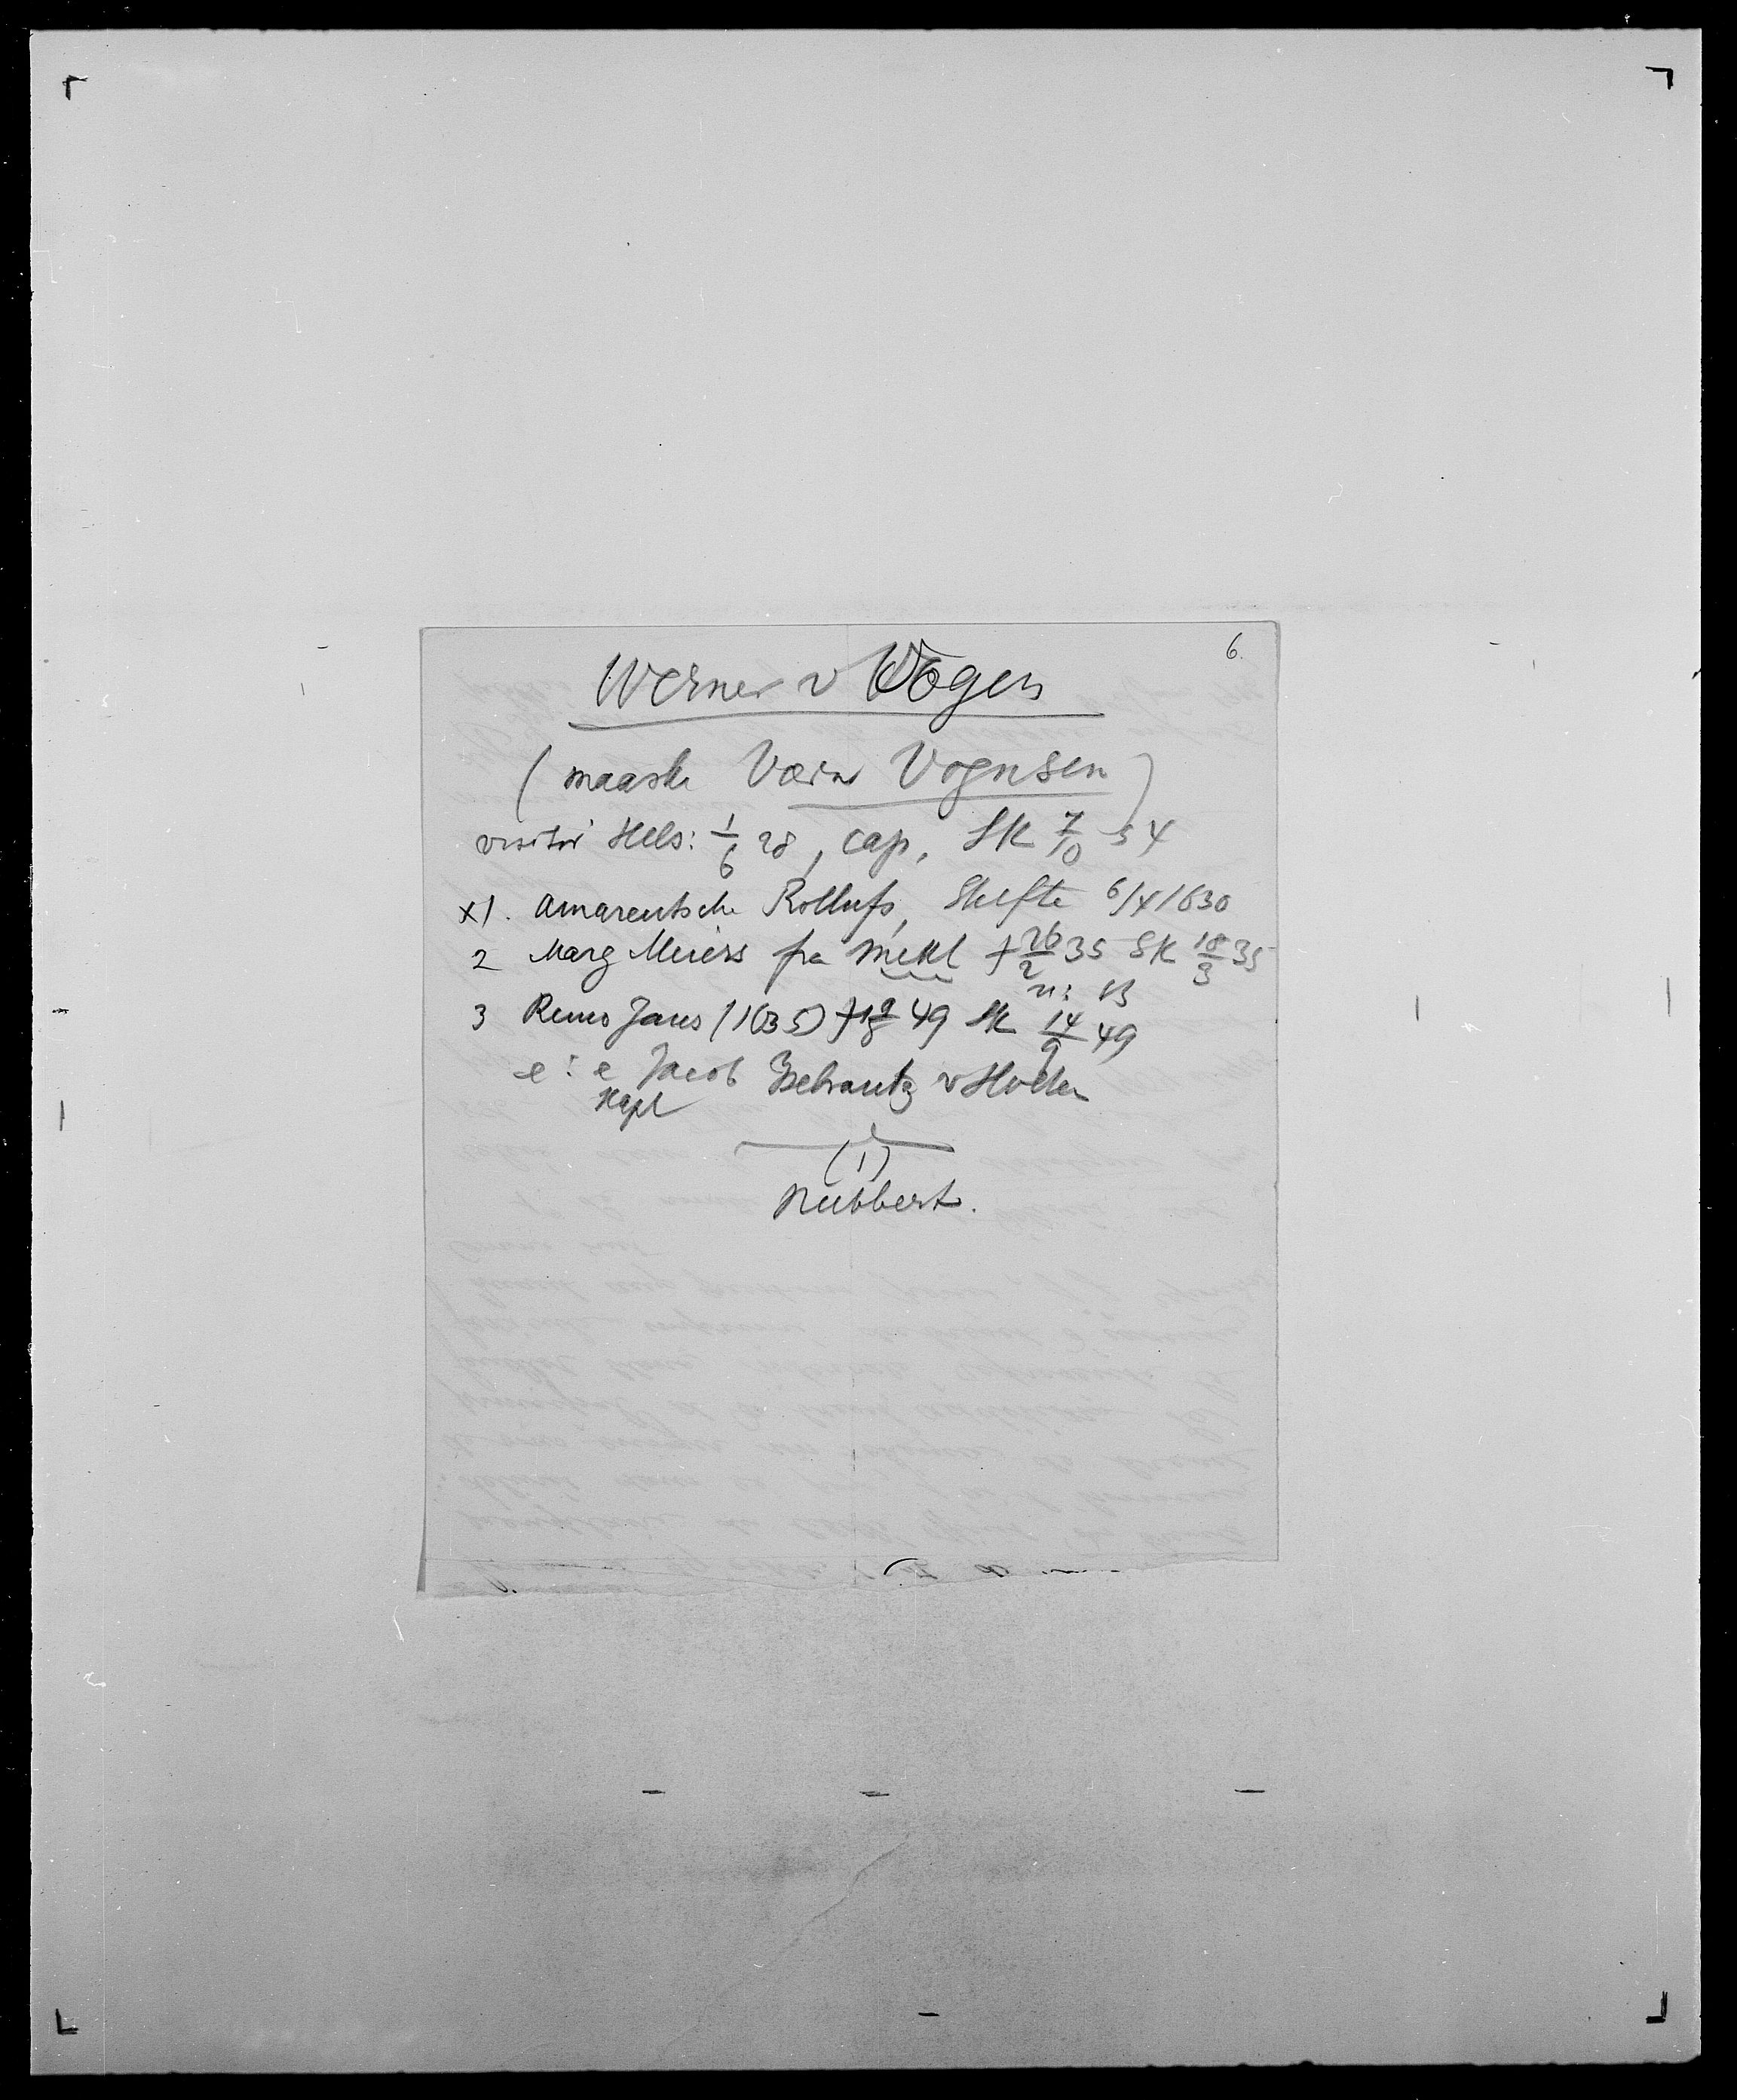 6.
Werner v Wogen
(maaske Værn Vognsen)
visitør Hels: 1/6 28, cap, SK 7/10 54
x1. Amarentsche Rollufs, Skifte 6/4 1630
2 Marg Meiers fra Mekl † 26/2 35 SK 18/3 35
3 Rems Jans (1635) † 49 SK 14/9 49
e: e Jacob v Holten
Kapt
(1)
Nubbert.